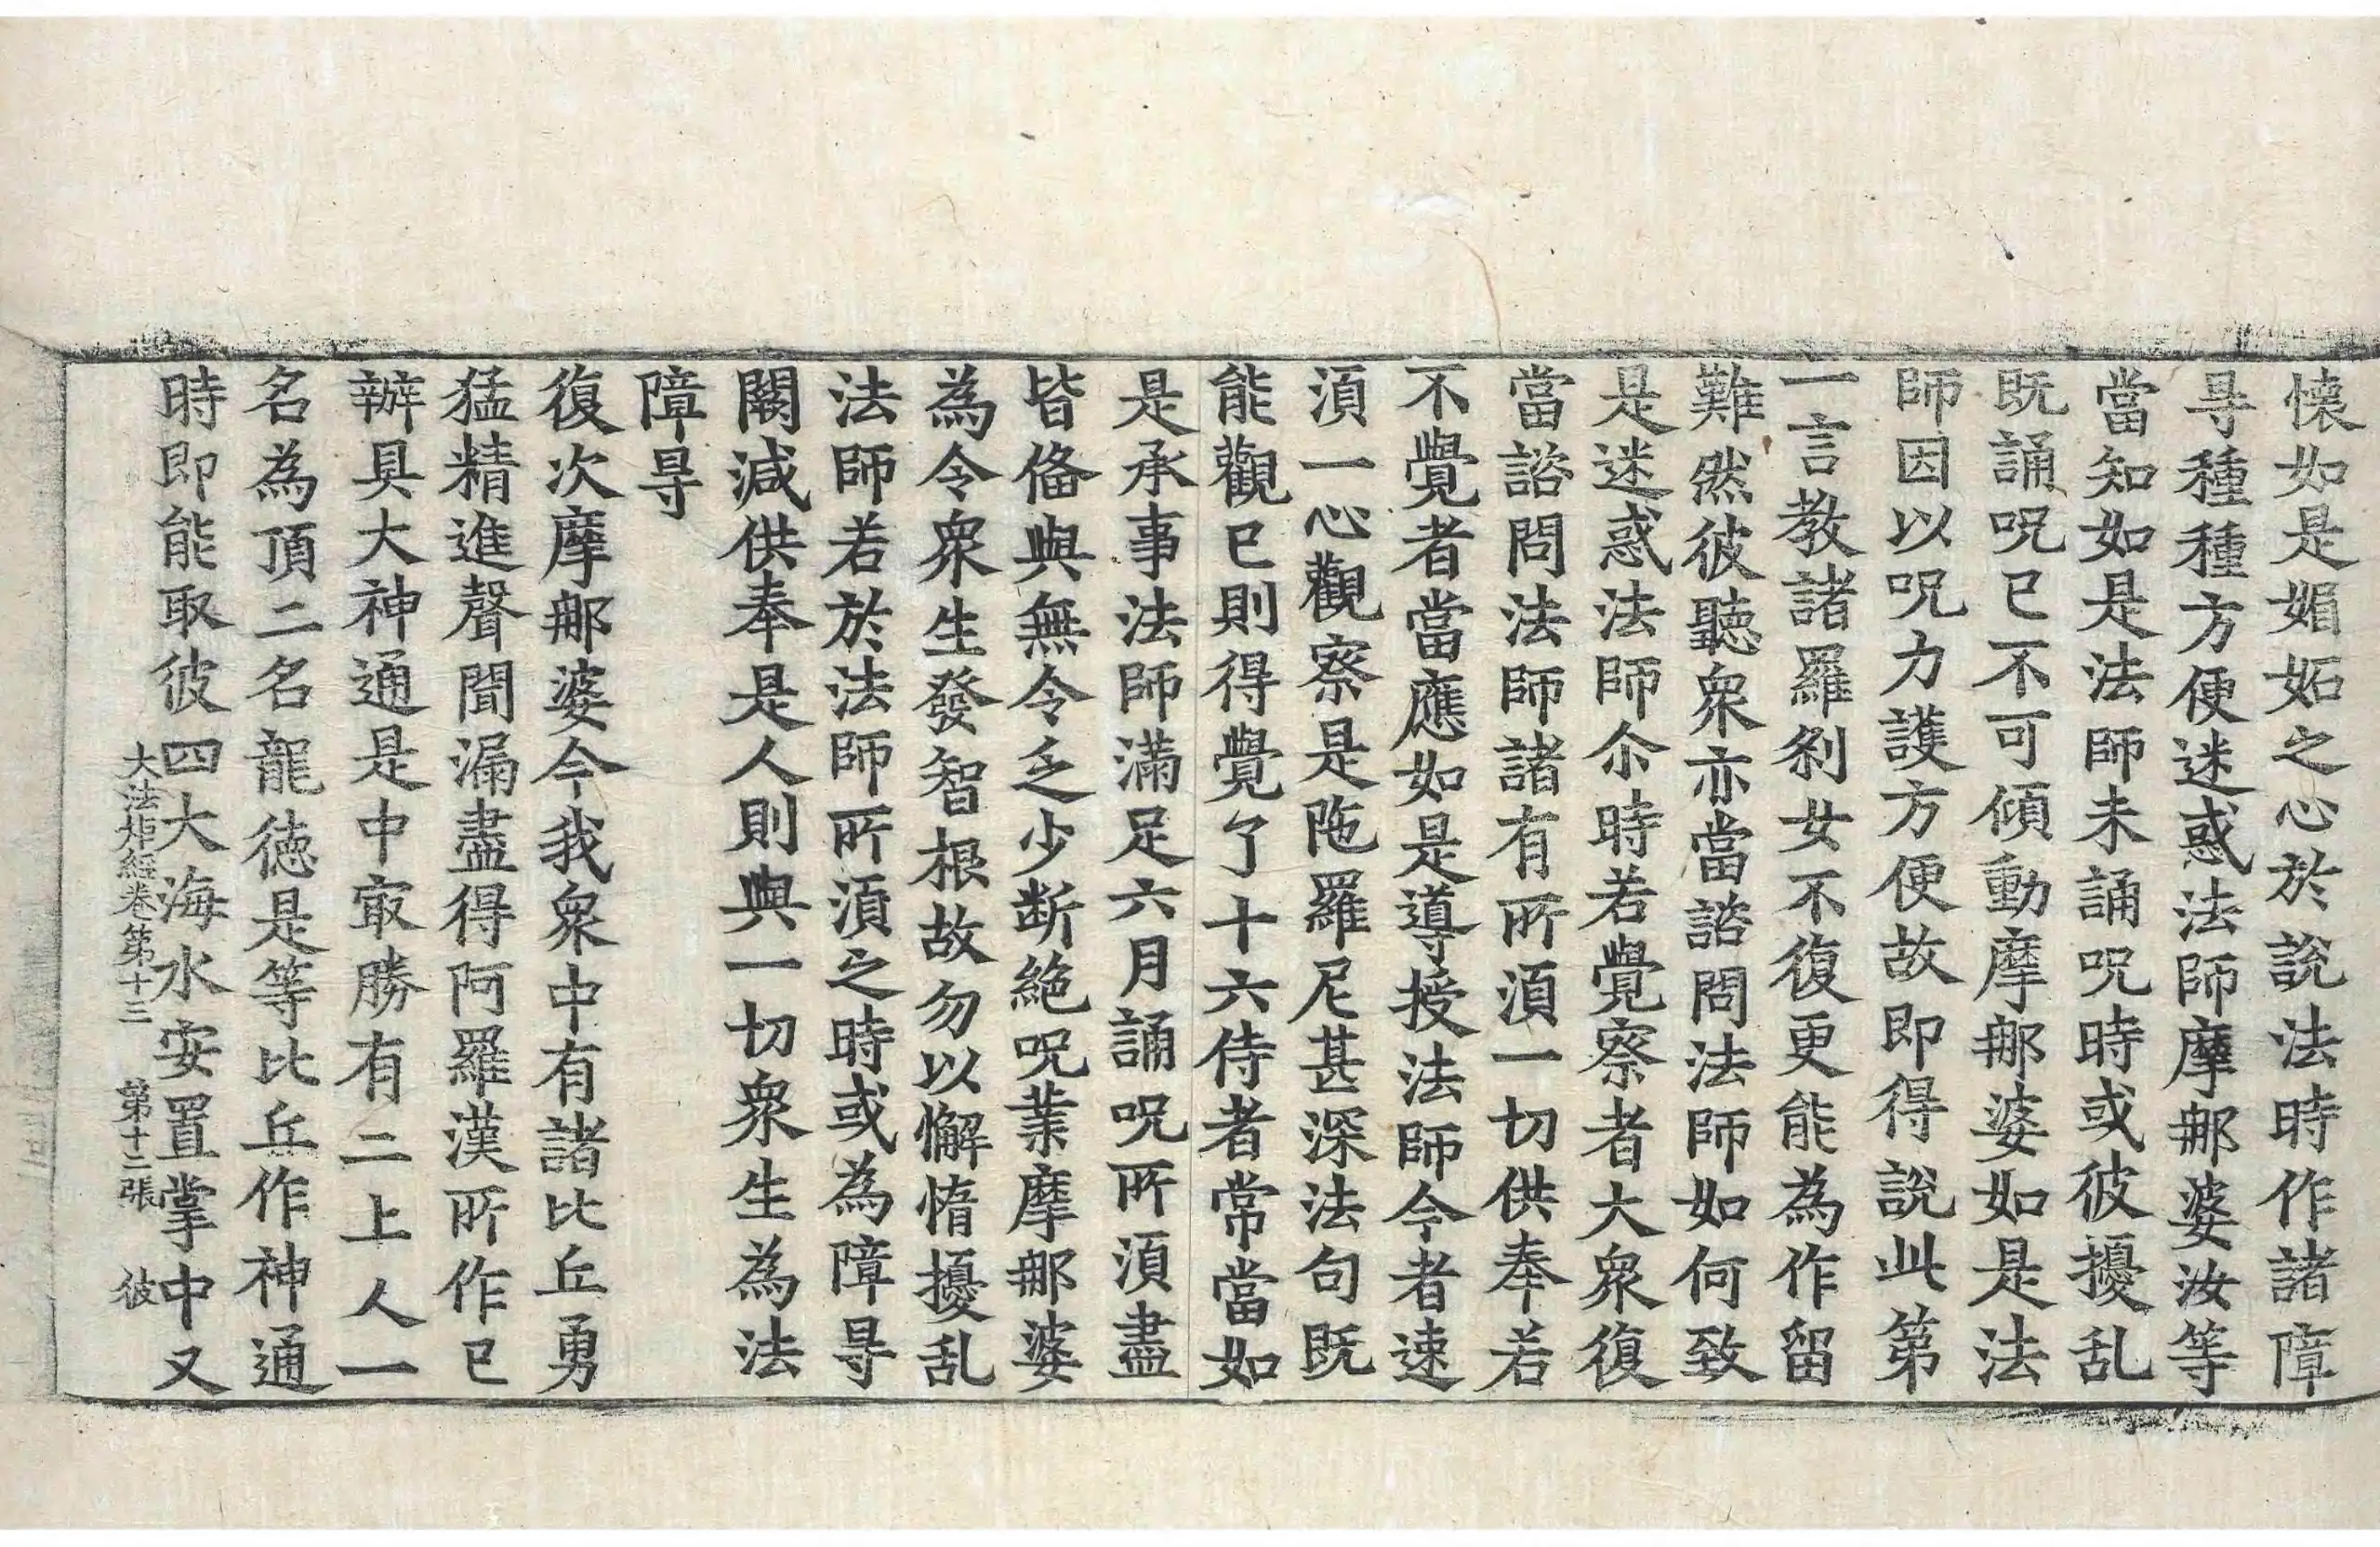 懐如是媚妬之心於說法時作諸障
㝵種種方便迷惑法師摩那婆汝等
當知如是法師未誦呪時或彼擾乱
既誦呪已不可傾動摩那婆如是法
師因以呪力護方便故即得說此第
一言教諸羅剎女不復更能為作留
難然彼聽衆亦當諮問法師如何致
是迷惑法師尒時若覺察者大衆復
當諮問法師諸有所須一切供奉若
不覺者當應如是導授法師今者速
須一心觀察是陁羅尼甚深法句既
能觀已則得覺了十六侍者常當如
是承事法師滿足六月誦呪所須盡
皆俻與無令乏少断絕呪業摩那婆
為令衆生發智根故勿以懈惰擾乱
法師若於法師所須之時或為障㝵
闕減供奉是人則與一切衆生為法
障㝵
復次摩那婆今我衆中有諸比丘勇
猛精進聲聞漏盡得阿羅漢所作已
辦具大神通是中㝡勝有二上人一
名為頂二名龍德是等比丘作神通
時即能取彼四大海水安置掌中又
大法炬經卷第十三 第十二張 彼